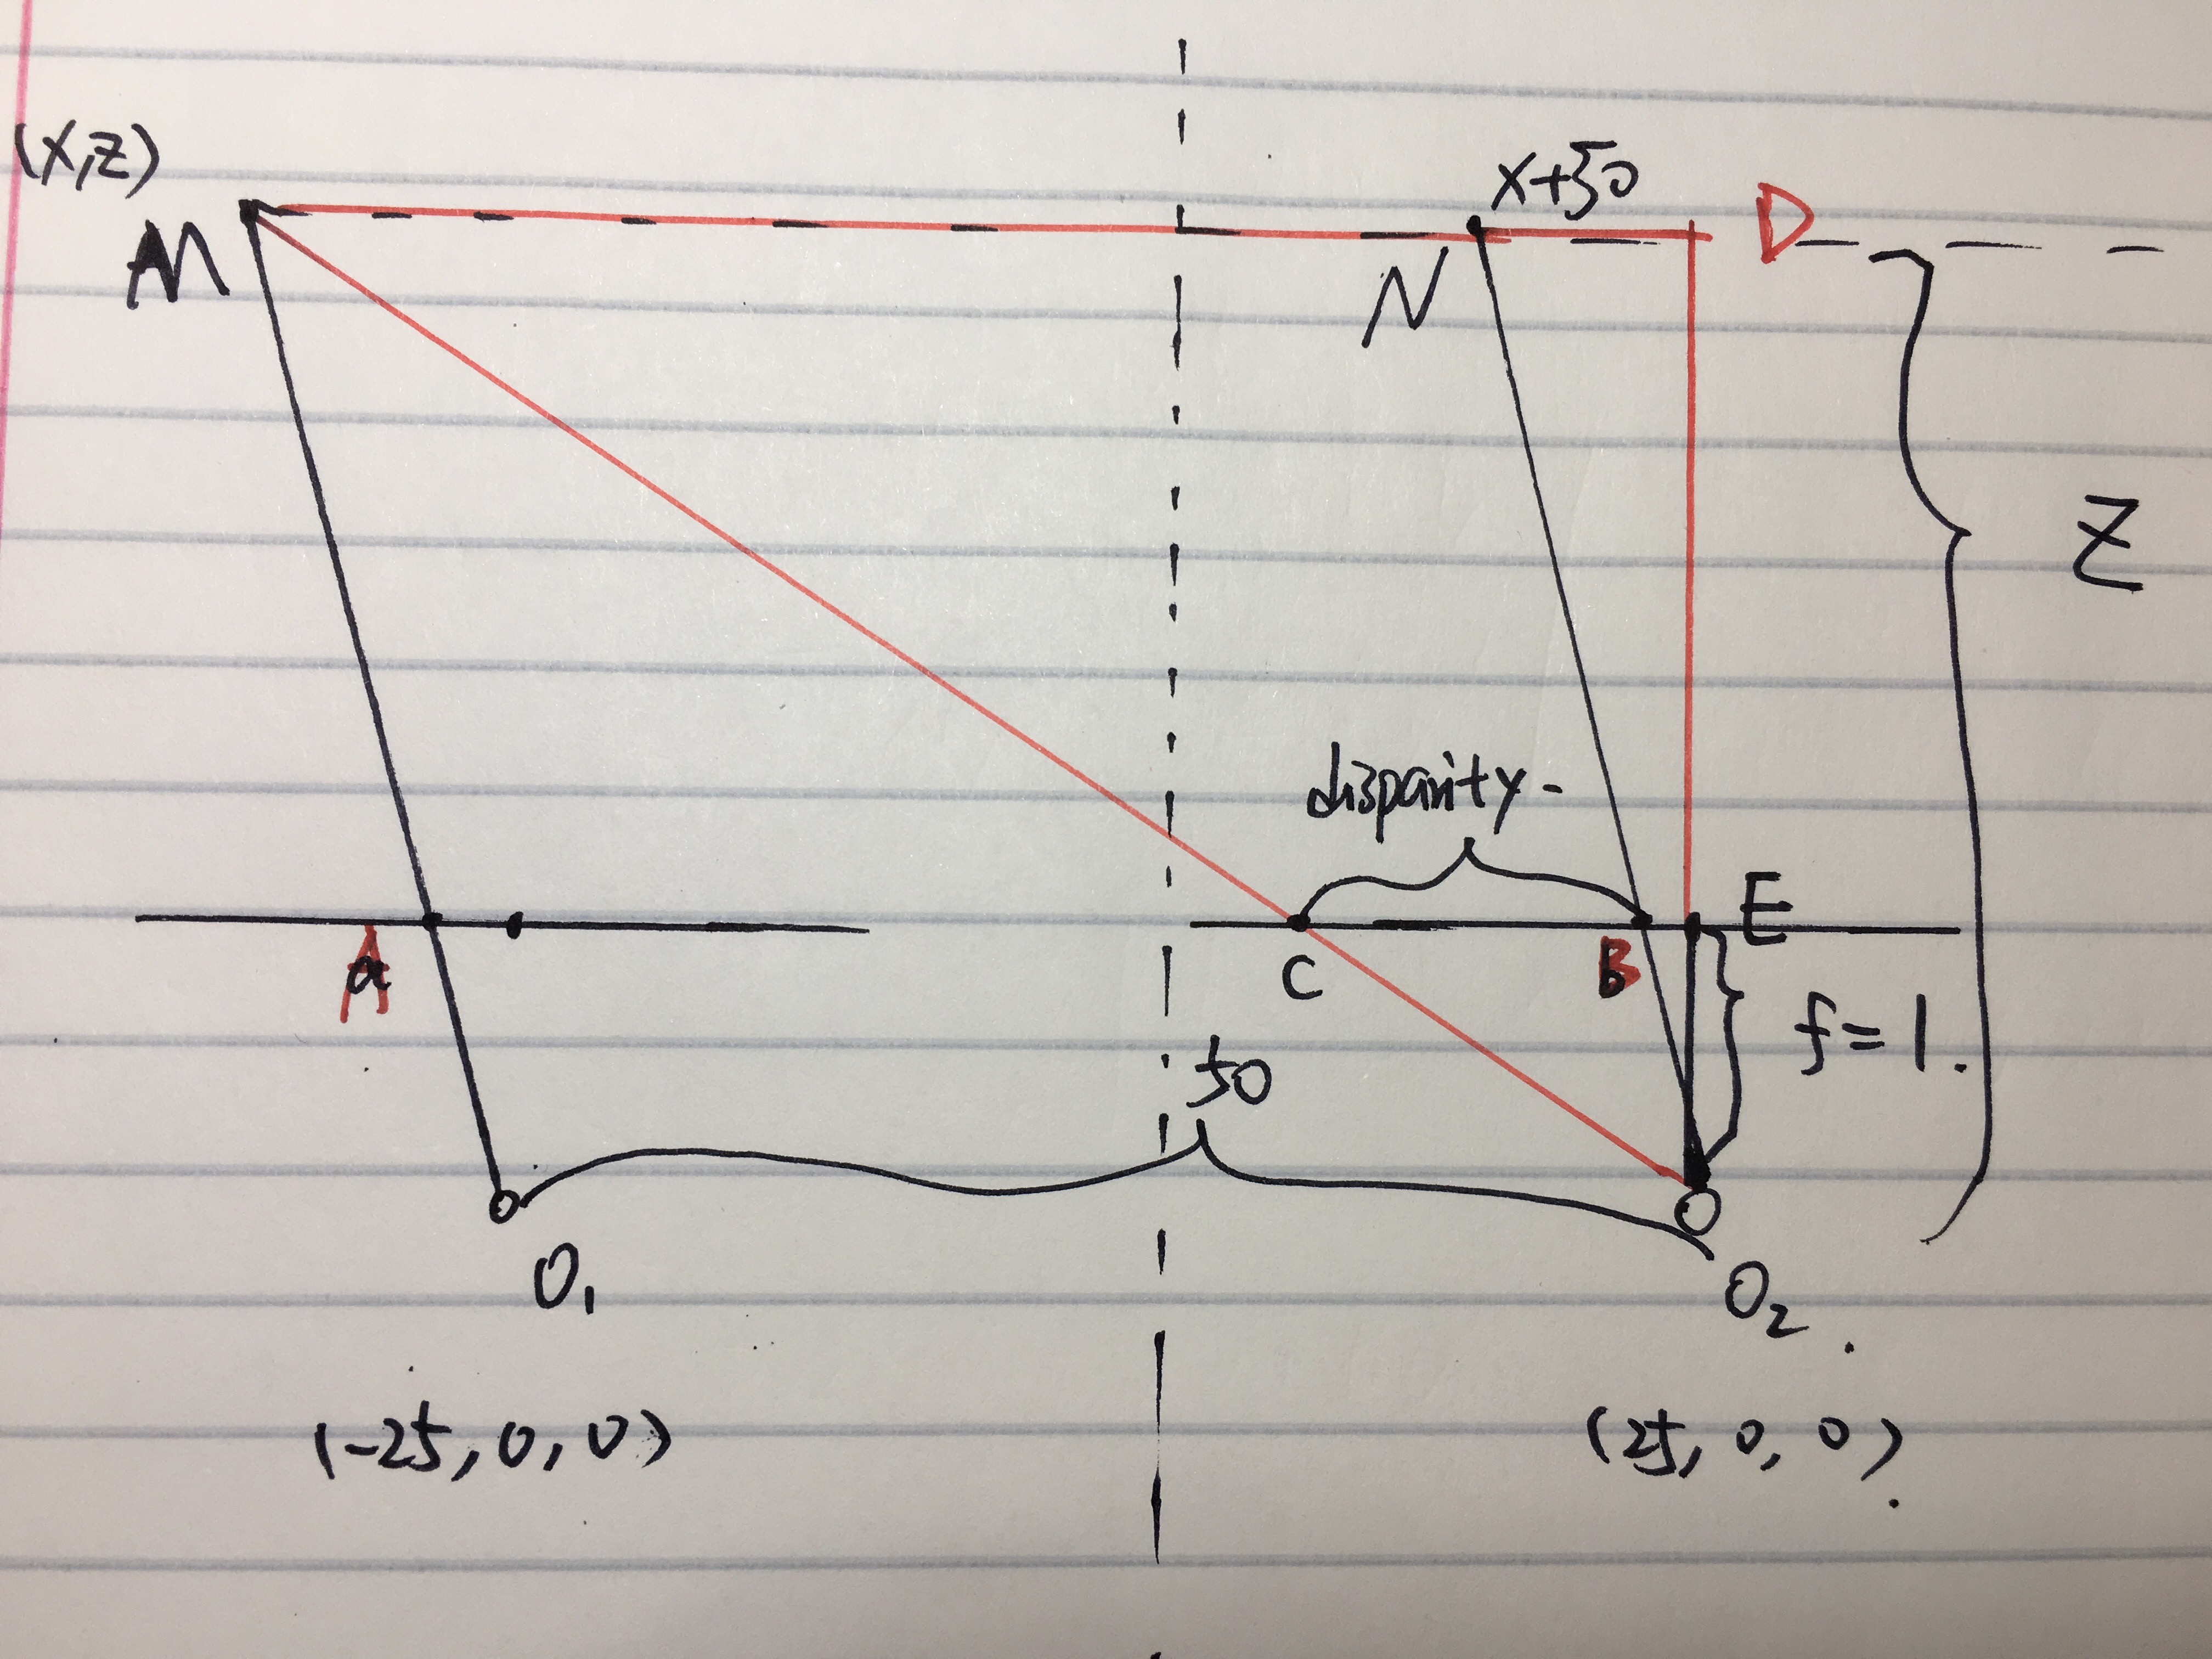 (x,z)
x+50
D
M
N
Z
disparity-
E
A
a
C
B
b
f=1.
50
O₁
O₂.
(-25, 0, 0)
(25, 0, 0).